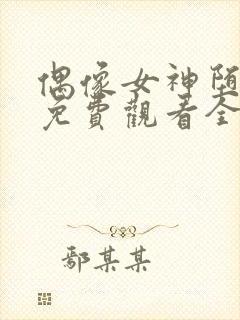 偶像女神堕
免費觀看全
鄢某某